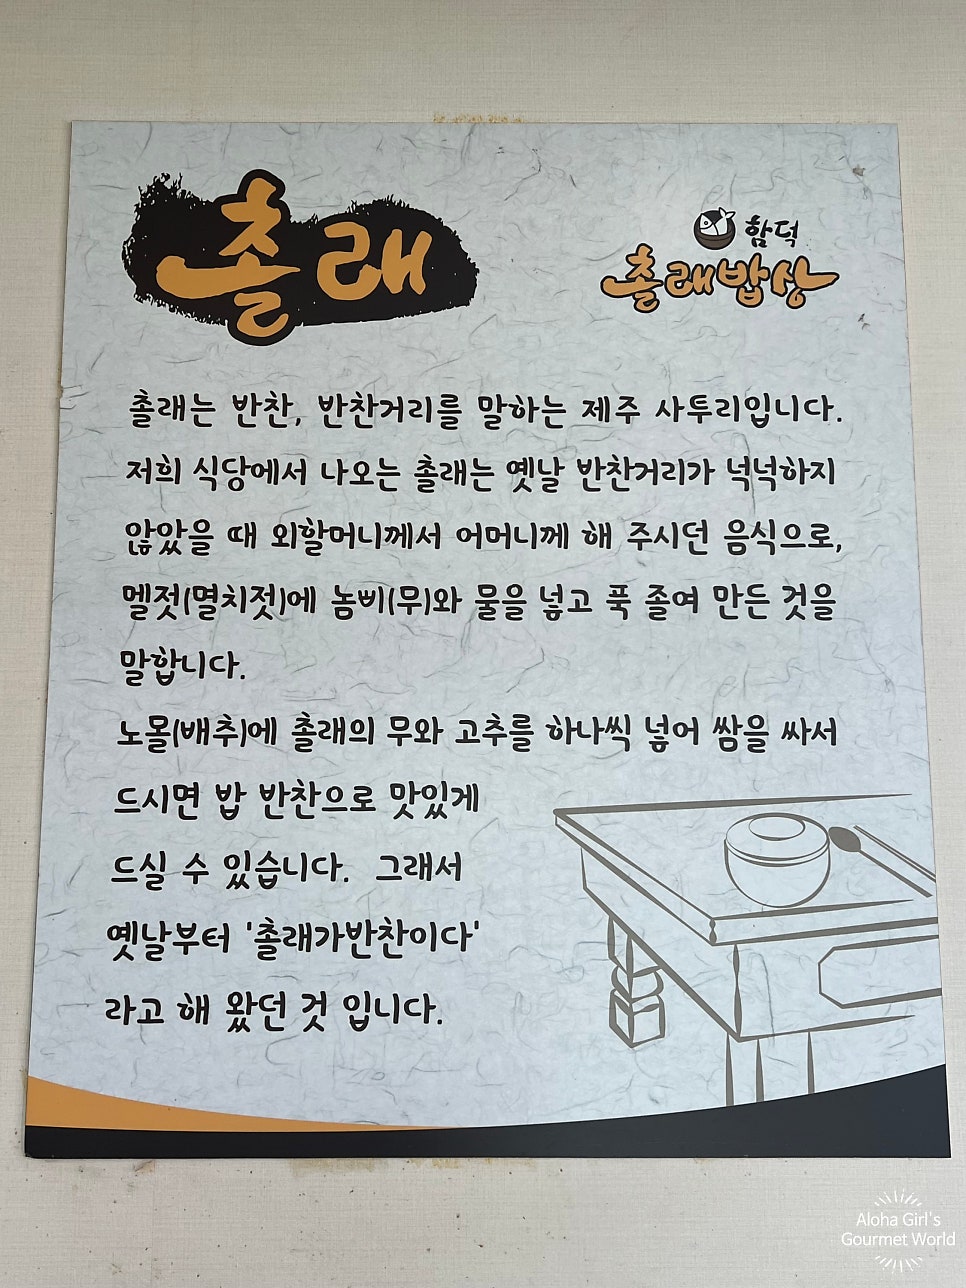 촐래
함덕
촐래밥상
촐래는 반찬, 반찬거리를 말하는 제주 사투리입니다.
저희 식당에서 나오는 촐래는 옛날 반찬거리가 넉넉하지
않았을 때 외할머니께서 어머니께 해 주시던 음식으로,
멜젓(멸치젓)에 놈삐(무)와 물을 넣고 푹 졸여 만든 것을
말합니다.
노몰(배추)에 촐래의 무와 고추를 하나씩 넣어 쌈을 싸서
드시면 밥 반찬으로 맛있게
드실 수 있습니다. 그래서
옛날부터 '촐래가반찬이다'
라고 해 왔던 것 입니다.
Aloha Girl's
Gourmet World